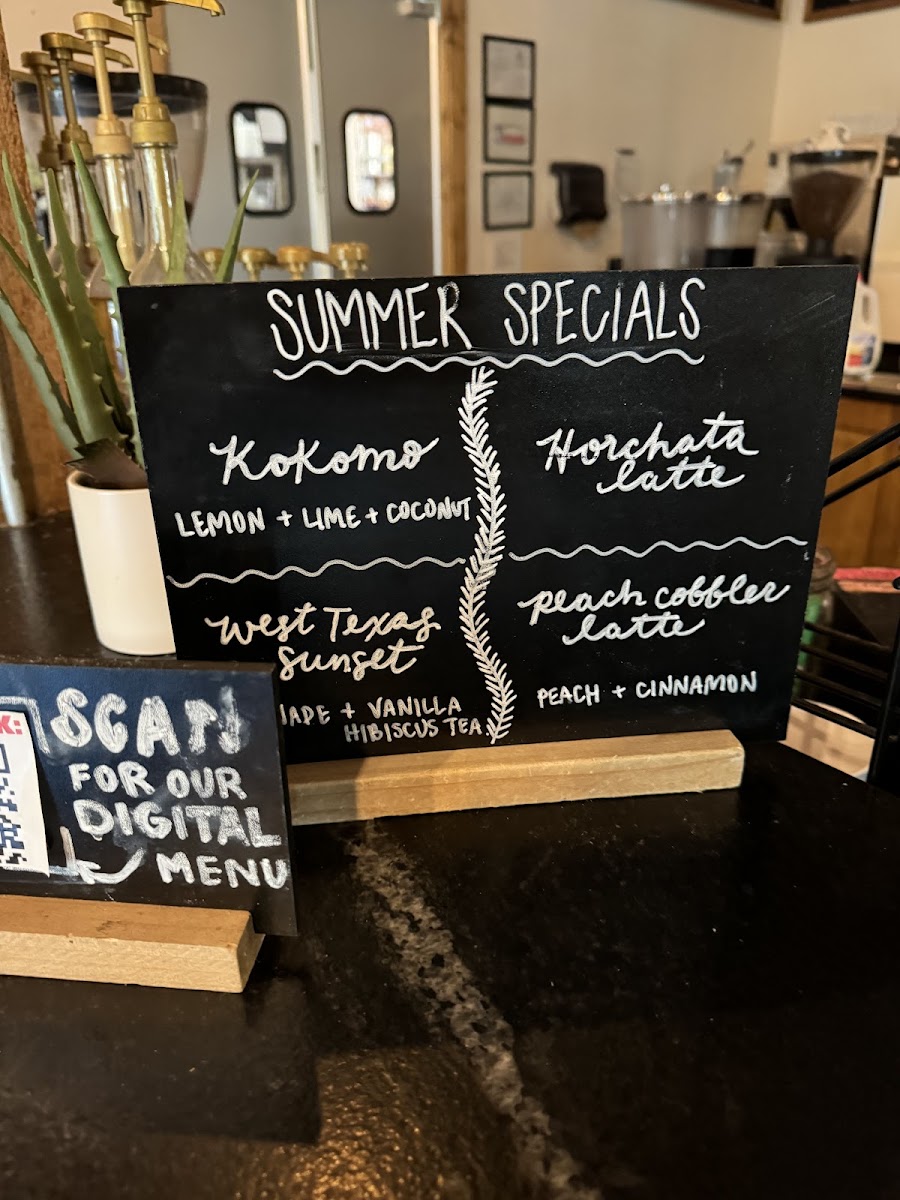 SUMMER SPECIALS
Kokomo
LEMON + LIME + COCONUT
Horchata
latte
West Texas
Sunset
+ VANILLA
HIBISCUS TEA
peach cobbler
latte
PEACH + CINNAMON
SCAN
FOR OUR
DIGITAL
MENU